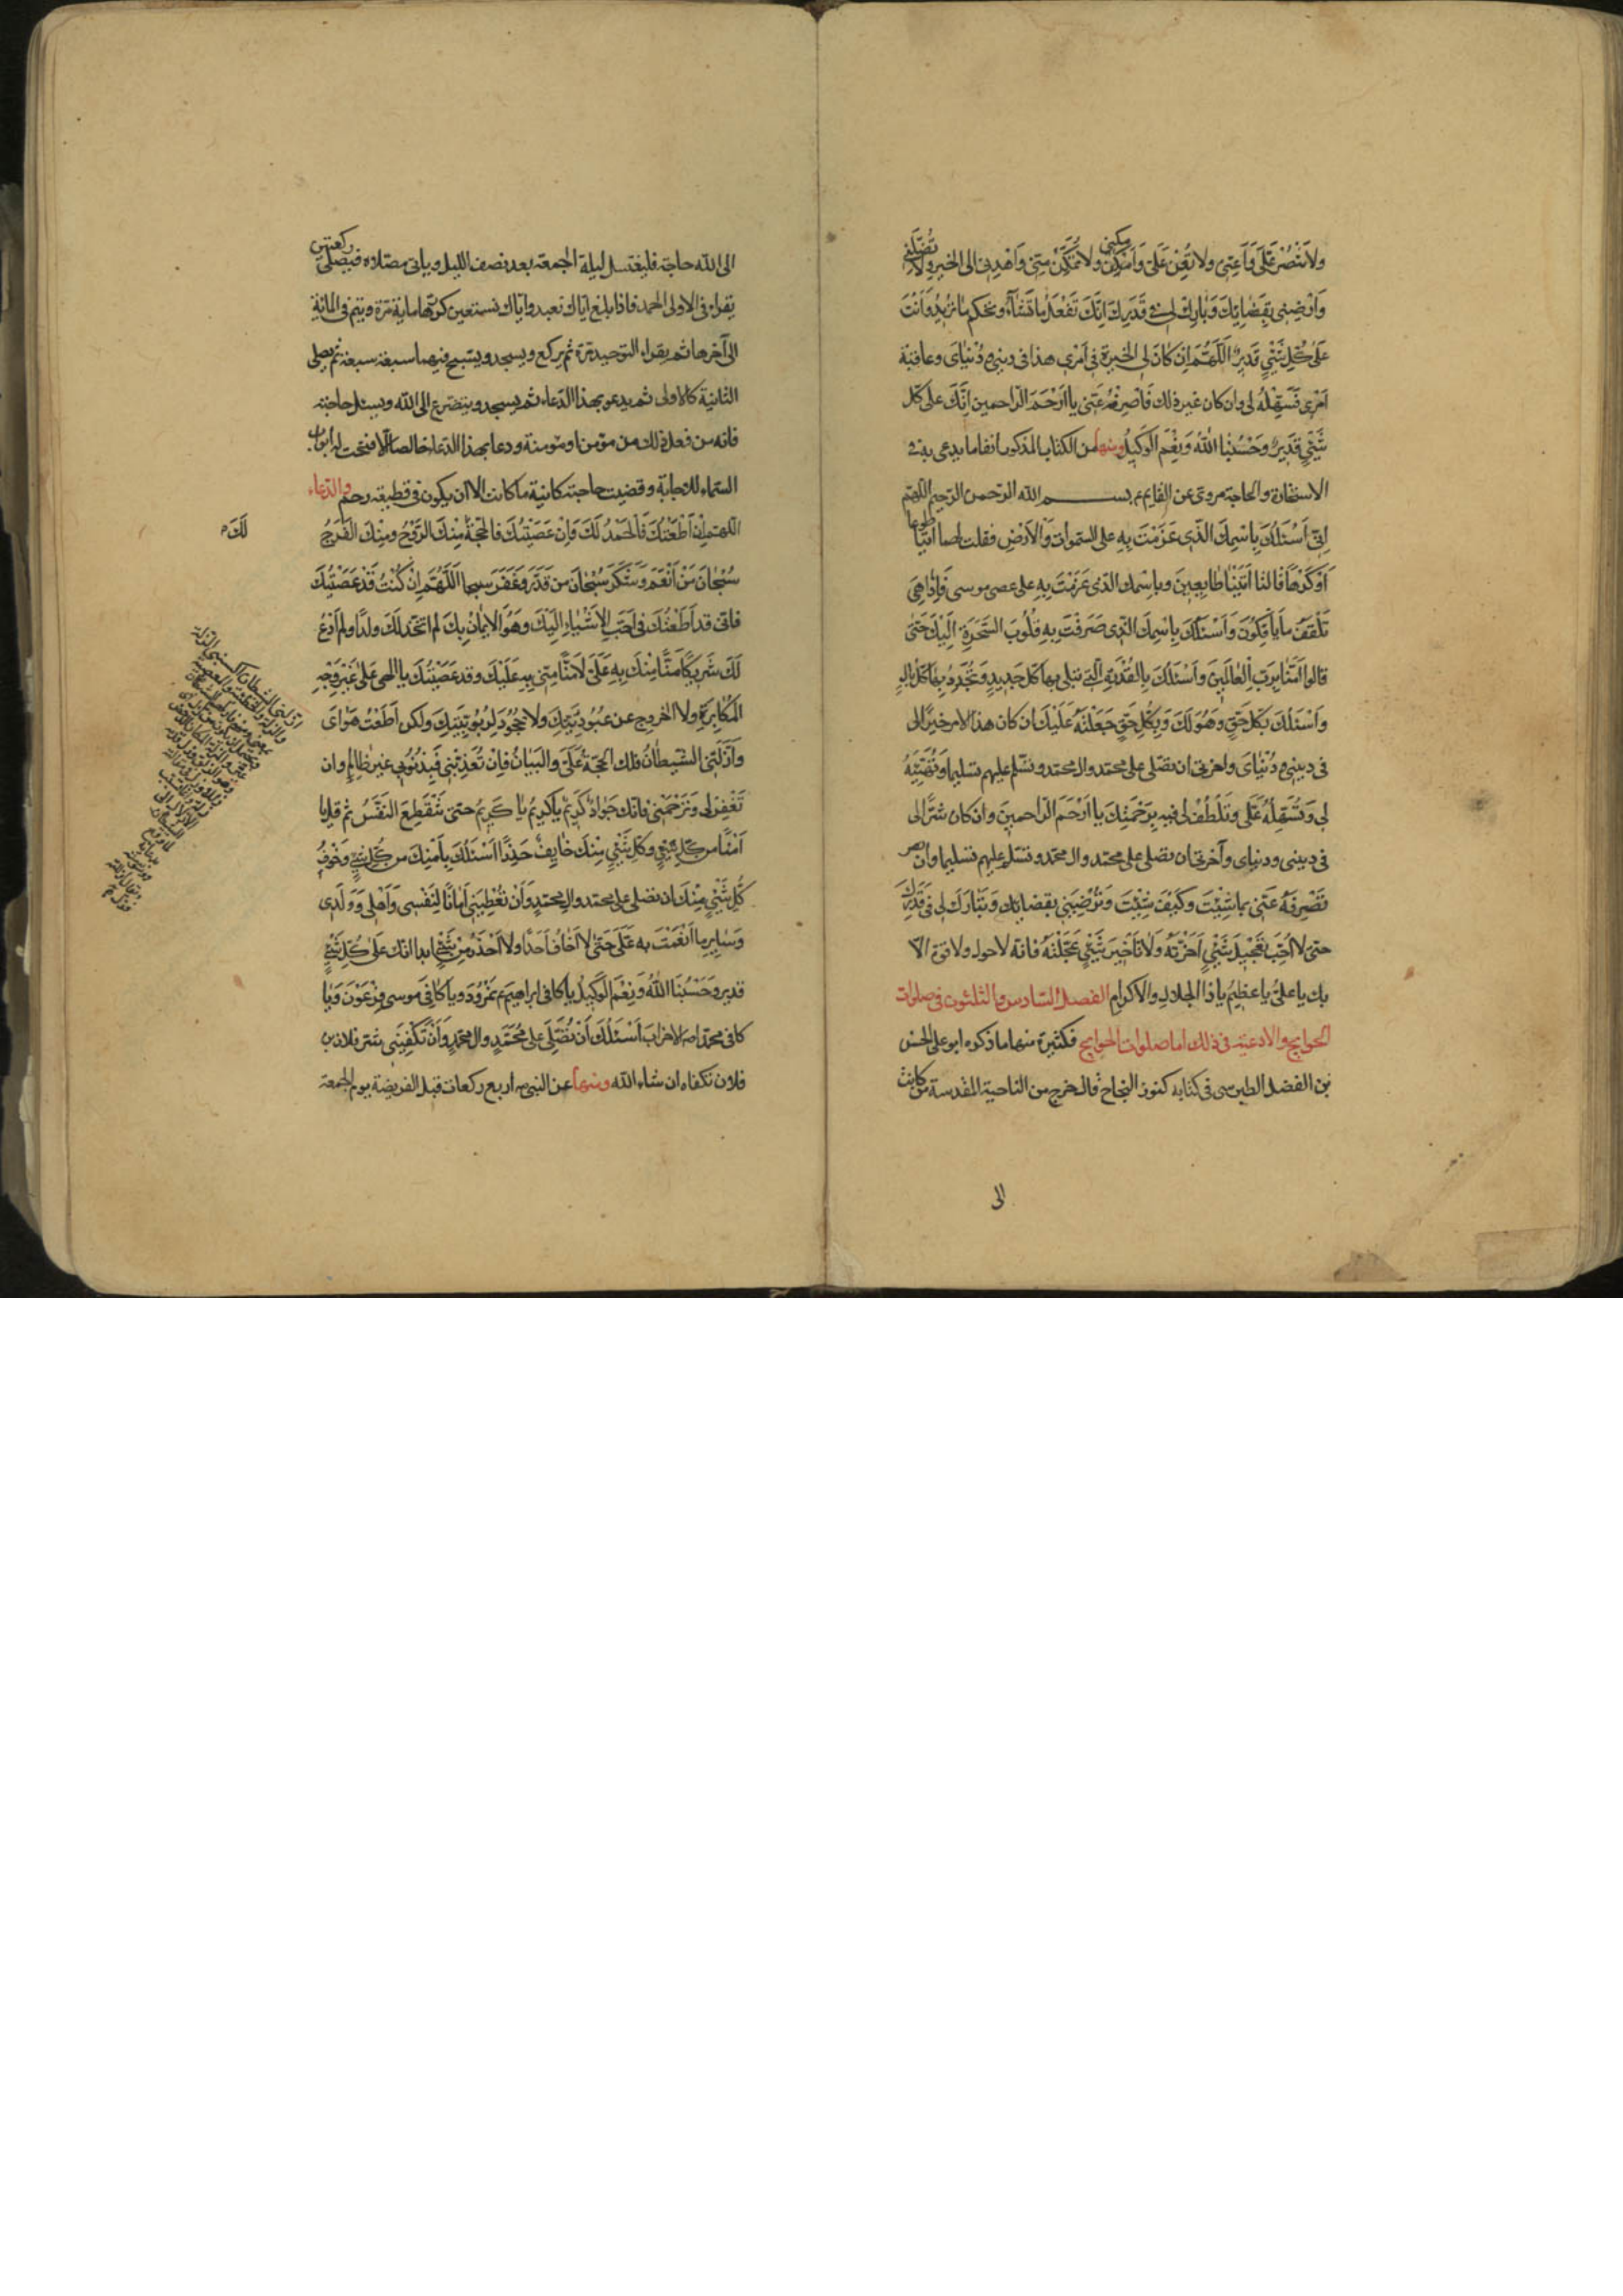 ولا تنصر عَلَيَّ وَأَعِنّي ولا تُعِن عَلَيَّ وَأمكِنّي ولا تُمَكِّن مِنّي وَاهْدِني الى الخير ولا تُضِلَّني
وَارْضِنِي بِقَضائِكَ وَبارِك لي في قَدَرِكَ اِنَّكَ تَفْعَلُ ما تَشاءُ وتحكم ما تُريدُ وَاَنْتَ
عَلى كُلِّ شَيْءٍ قَدير اَللّهُمَّ اِن كانَ لي الخيرة في اَمْري هذا في ديني ودُنْيايَ وعاقبة
اَمْري فَسَهِّلْهُ لي وان كان غير ذلك فَاصْرِفهُ عَنّي يا اَرْحَمَ الرّاحمين اِنَّكَ على كلّ
شَيْءٍ قَديرٌ وَحَسْبُنا اللهُ وَنِعْمَ الوَكيلُ ومنها من الكتاب المذكور انفا ما يدعى به في
الاستخارة والحاجة مروي عن القايم ع بسم الله الرحمن الرحيم اللهم
اِنّي اَسْئَلُكَ بِاسْمِكَ الَّذي عَزَمْتَ بِهِ على السموات وَالاَرْضِ فقلت لهما ائتيا طوعا
اَوْ كَرْهاً قالتا اَتَيْنا طائِعينَ وباسمك الذي عَزَمْتَ بِهِ على عصى موسى فَاِذا هِيَ
تَلْقَفُ ما يَأْفِكُونَ وَاَسْئَلُكَ بِاسْمِكَ الذي صَرَفْتَ بِهِ قُلُوبَ السَّحَرَةِ اِلَيْكَ حَتّى
قالوا آمَنّا بِرَبِّ الْعالَمينَ وَاَسْئَلُكَ بِالقُدْرَةِ الَّتي تبلى بها كلّ جَديدٍ وَتُجَدِّدُ بِها كُلَّ بالٍ
وَاَسْئَلُكَ بكلّ حَقٍّ هُوَ لَكَ وَبِكُلِّ حَقٍّ جَعَلْتَهُ عَلَيْكَ ان كان هذا الامر خيرًا لي
في ديني ودُنْيايَ واخرتي ان تصلّي على محمّد وال محمّد وتسلّم عليهم تسليما وتُهَيِّئَهُ
لي وَتُسَهِّلَهُ عَلَيَّ وتَلْطُفَ لي فيهِ بِرَحْمَتِكَ يا اَرْحَمَ الرّاحمين وان كان شرًّا لي
في ديني ودنياي وآخرتي ان تصلي على محمد وال محمّد وتسلّم عليهم تسليما وان
تَصْرِفَهُ عَنّي بما شِئْتَ وكَيْفَ شِئْتَ وَتُرْضِيَني بقضائك وَتُبارِكَ لي في قَدَرِكَ
حتى لا اُحِبَّ تَعْجيلَ شَيْءٍ اَخَّرْتَهُ وَلا تَأخيرَ شَيْءٍ عَجَّلْتَهُ فانه لا حول ولا قوة الّا
بك يا عليّ يا عظيم يا ذا الجلال والاكرام الفصل السّادس والثلثون في صلوات
الحوايج والادعية في ذلك اما صلوات الحوايج فكثيرة منها ما ذكره ابو علي الحسن
بن الفضل الطبرسي في كتابه كنوز النجاح قال خرج من الناحية المقدسة من كانت
الى
الى الله حاجة فليغتسل ليلة الجمعة بعد نصف الليل وياتي مصلّاه فيصلّي ركعتين
يقراء في الاولى الحمد فاذا بلغ ايّاك نعبد وايّاك نستعين كرّرها ماية مرّة ويتم في الماية
الى آخرها ثم يقراء التوحيد مرّة ثم يركع ويسجد ويسبح فيهما سبعة سبعة ثم يصلي
الثانية كالاولى ثم يدعو بهذا الدّعاء ثم يسجد ويتضرع الى الله ويسئل حاجته
فانه من فعل ذلك من مؤمن او مؤمنة ودعا بهذا الدعا خالصا الّا فتحت له ابواب
السّماء للاجابة وقضيت حاجته كائنة ما كانت الا ان يكون في قطيعة رحم والدّعاء
اللهم اِنْ اَطَعْتُكَ فَالحَمْدُ لَكَ وَاِنْ عَصَيْتُكَ فالحُجَّةُ مِنْكَ الرَّوْحُ ومِنْكَ الفَرَجُ
لَكَ
سُبْحانَ مَنْ اَنْعَمَ وَشَكَرَ سُبْحانَ من قَدَّرَ وغَفَرَ اَللّهُمَّ اِنْ كُنْتُ قَدْ عَصَيْتُكَ
فانّي قد اَطَعْتُكَ في اَحَبِّ الاَشْياءِ اِلَيْكَ وهُوَ الايمانُ بِكَ لم اتّخذ لَكَ ولدًا ولم اَدْعُ
لَكَ شَريكًا مَنًّا مِنْكَ بِهِ عَلَيَّ لا مَنًّا مِنّي به عَلَيْكَ وقد عَصَيْتُكَ يا الهي عَلى غَيْرِ وَجْهِ
المُكابَرَةِ ولا الخُروجِ عن عُبُودِيَّتِكَ ولا الجُحُودِ لِرُبُوبِيَّتِكَ ولكن اَطَعْتُ هَوايَ
وَاَزَلَّني الشَّيطانُ فلك الحُجَّةُ عَلَيَّ والبَيانُ فاِنْ تُعَذِّبْني فَبِذُنُوبي غير ظالِمٍ وان
تَغْفِرْ لي وَتَرْحَمْني فانّك جَوادٌ كَريمٌ يا كَريمُ يا كَريمُ حتى يَنْقَطِعَ النَّفَسُ ثم قل يا
آمِنًا من كُلِّ شَيْءٍ وكلّ شَيْءٍ مِنْكَ خائِفٌ حَذِرٌ اَسْئَلُكَ بِاَمْنِكَ من كُلِّ شَيْءٍ وَخَوْفِ
كُلِّ شَيْءٍ مِنْكَ ان تصلي على محمد وال محمّدٍ وَاَنْ تُعْطِيَني اَمانًا لِنَفْسي وَاَهْلي وَوَلَدي
وَسايِرِ ما اَنْعَمْتَ به عَلَيَّ حَتّى لا اَخافَ اَحَدًا ولا اَحْذَرَ مِنْ شَيْءٍ ابدا انّك عَلى كُلِّ شَيْءٍ
قدير وحَسْبُنَا اللهُ وَنِعْمَ الوَكيلُ يا كافي ابراهيم ع نَمْرُودَ ويا كافِيَ موسى فِرْعَوْنَ وَيا
كافي محمّد ص الاحزاب اَسْئَلُكَ اَنْ تُصَلِّيَ على مُحَمَّدٍ وال محمّدٍ وَاَنْ تَكْفِيَني شر فلان بن
فلان تكفاه ان شاء الله ومنها عن النبي ص اربع ركعات قبل الفريضة يوم الجمعة